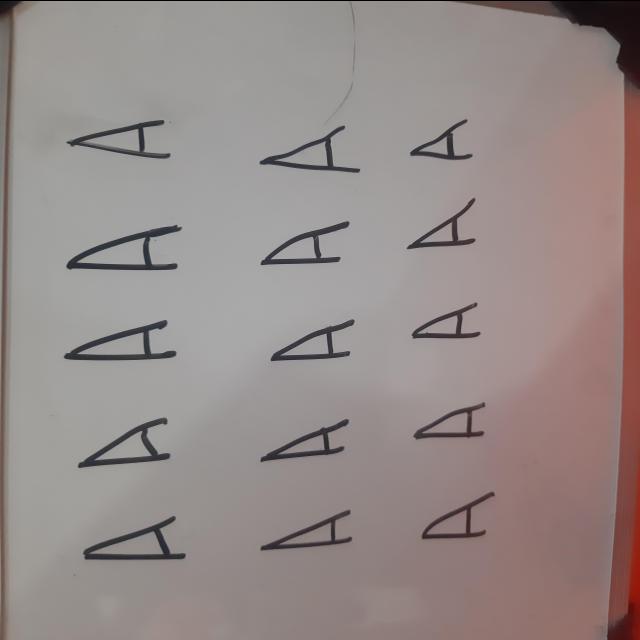 A A A A A
A A A A A
A A A A A